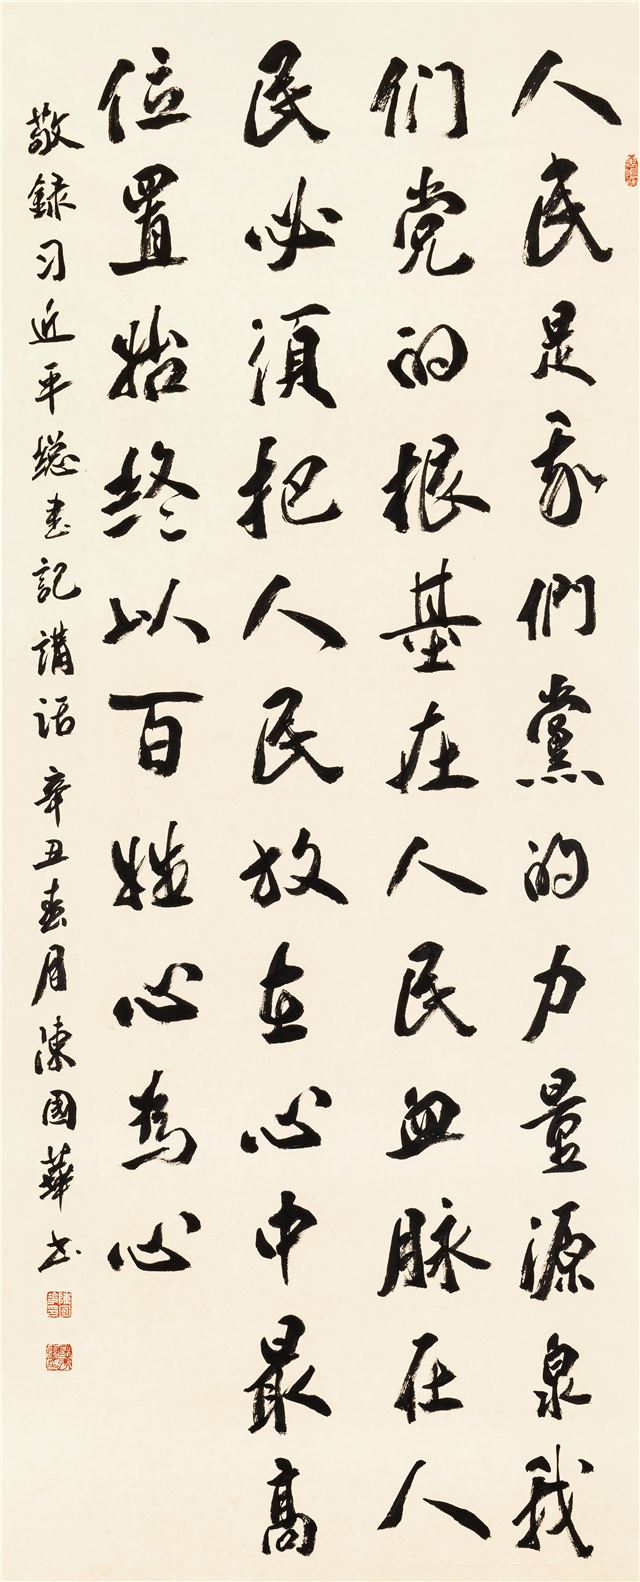 人民是我們黨的力量源泉我
们党的根基在人民血脉在人
民必須把人民放在心中最高
位置始终以百姓心為心
敬録习近平總書記講話辛丑春月陳國華书